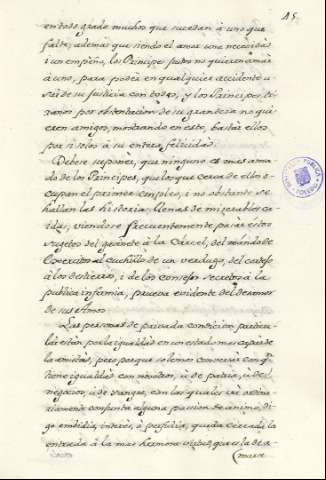 15.
en todo grado muchos que sucedan à uno que
falte; además que siendo el amor una necesidad
i un empeño, los Principes justos no quieren amar
à uno, para poder en qualquier accidente u
sar de su justicia con todos, y los Principes ti
ranos por obstentacion de su grandeza no qui
eren amigos, mostrando en esto, bastar ellos
por si solos à su entera felicidad.
Debese suponer, que ninguno es mas ama
do de los Principes, que los que cerca de ellos o
cupan el primer empleo, i no obstante se
hallan las historias llenas de miserables ca
idas, viendose frecuentemente pasar estos
sugetos del grande à la Carcel, del mando de
l exercito al cuchillo de un verdugo, del
à los destierros, i de los consejos secretos à la
publica infamia, prueva evidente del desamor
de sus Amos.
Las personas de privada condicion
están por la igualdad en un estado mas capaz de
la amistad, pero porque solemos conversar con
tiene igualdad con nosotros, ù de patria, ù de
negocios, ù de sangre, con las quales và ordina
riamente conjunta alguna passion de animo, di
go embidia, interès, ò perfidia, queda cerrada la
entrada à la mas hermosa virtud, que es la de a
mar